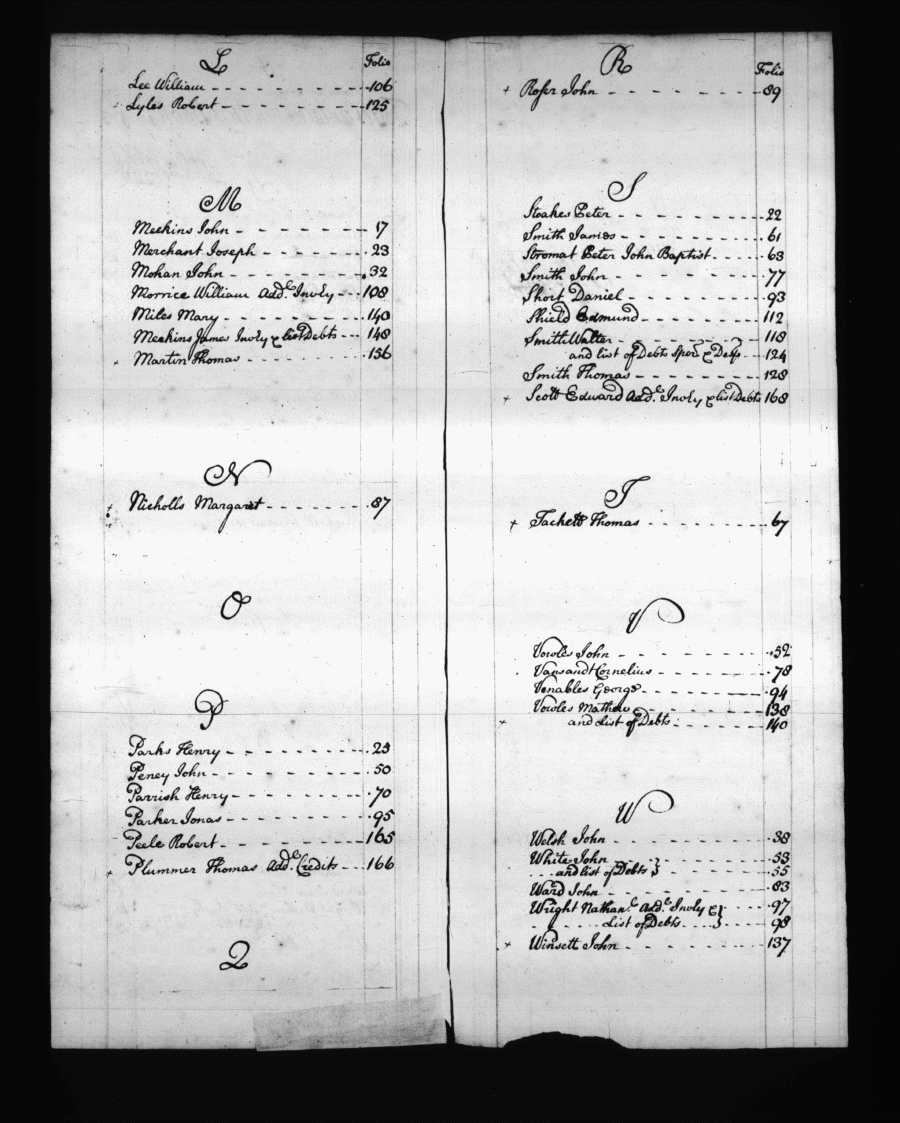 L
Folio
Lee William 106
Lyles Robert 125
M
Meekins John 17
Merchant Joseph 23
Mohan John 32
Morrice William Addl. Invly 108
Miles Mary 140
Meekins James Invly & list Debts 148
Martin Thomas 156
N
Nicholls Margaret 87
O
P
Parks Henry 25
Peney John 50
Parrish Henry 70
Parker Jonas 95
Peele Robert 165
Plummer Thomas Addl. Credits 166
Q
R
Folio
Roser John 89
S
Stoakes Peter 22
Smith James 61
Stromat Peter John Baptist 63
Smith John 77
Short Daniel 93
Shield Edmund 112
Smith Walter 118
and list of Debts Sper. & Desp 124
Smith Thomas 128
Scott Edward Addl. Invly & list Debts 168
T
Tackett Thomas 67
V
Vowles John 52
Vansandt Cornelius 78
Venables George 94
Vowles Mathew 138
and List of Debts 140
W
Welsh John 38
White John 53
and list of Debts 55
Ward John 83
Wright Nathanl. Addl. Invly & 97
List of Debts 98
Winsett John 137